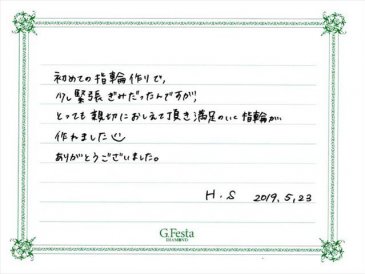 初めての指輪作りで、
少し緊張ぎみだったんですが、
とっても親切におしえて頂き満足のいく指輪が
作れました
ありがとうございました。
H.S 2019.5.23
G.Festa
DIAMOND